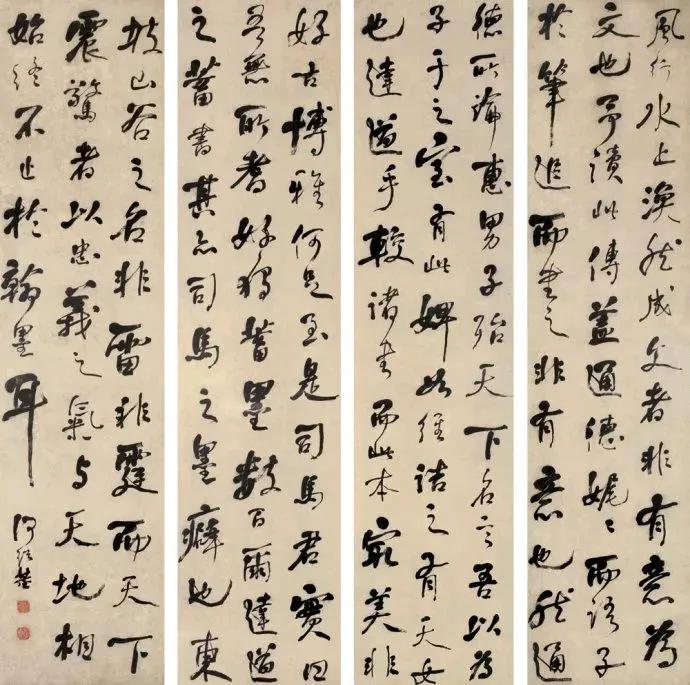 風行水上渙然成文者非有意為
文也予讀此傳蓋通德娓〻而語子
於筆追而書之非有意也然通
德所論惠男子殆天下名言吾以為
子于之室有此婢如維詰之有天女
也達道手較諸書而此本最美非
好古博雅何足至是司馬君實曰
吾無所耆好獨蓄墨數百爾達道
之蓄書其亦司馬之墨癖也東
坡山谷之名非雷非霆而天下
震驚者以忠義之氣与天地相
始終不止於翰墨耳
何紹基